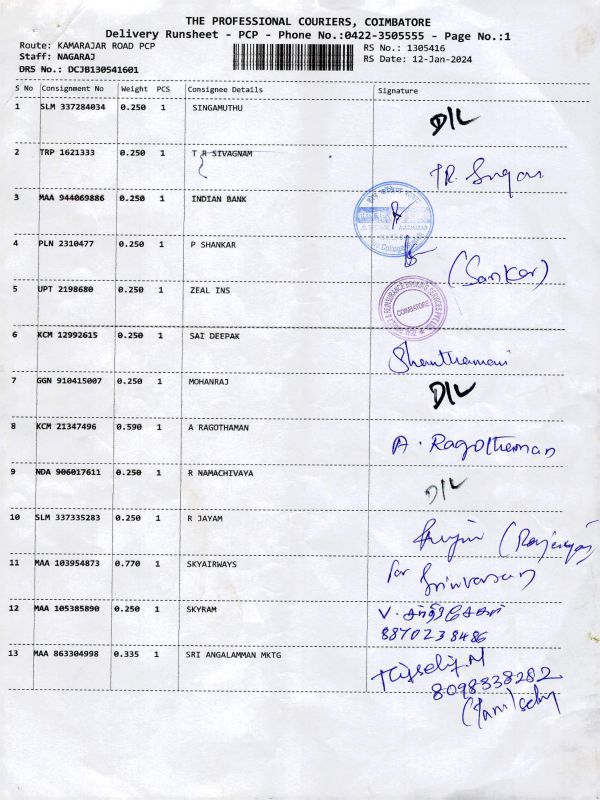 THE PROFESSIONAL COURIERS, COIMBATORE
Delivery Runsheet - PCP - Phone No.:0422-3505555 - Page No.:1
Route: KAMARAJAR ROAD PCP RS No.: 1305416
Staff: NAGARAJ RS Date: 12-Jan-2024
DRS No.: DCJB130541601
S No Consignment No Weight PCS Consignee Details Signature
1 SLM 337284034 0.250 1 SINGAMUTHU D/L
2 TRP 1621333 0.250 1 T R SIVAGNAM TR.
3 MAA 944069886 0.250 1 INDIAN BANK
4 PLN 2310477 0.250 1 P SHANKAR (Sankar)
5 UPT 2198680 0.250 1 ZEAL INS COIMBATORE
6 KCM 12992615 0.250 1 SAI DEEPAK Shanthamani
7 GGN 910415007 0.250 1 MOHANRAJ D/L
8 KCM 21347496 0.590 1 A RAGOTHAMAN A. Ragothaman
9 NDA 906017611 0.250 1 R NAMACHIVAYA D/L
10 SLM 337335283 0.250 1 R JAYAM
11 MAA 103954873 0.770 1 SKYAIRWAYS for Srinivasan
12 MAA 105385890 0.250 1 SKYRAM V.
8870238486
13 MAA 863304998 0.335 1 SRI ANGALAMMAN MKTG
8098338282